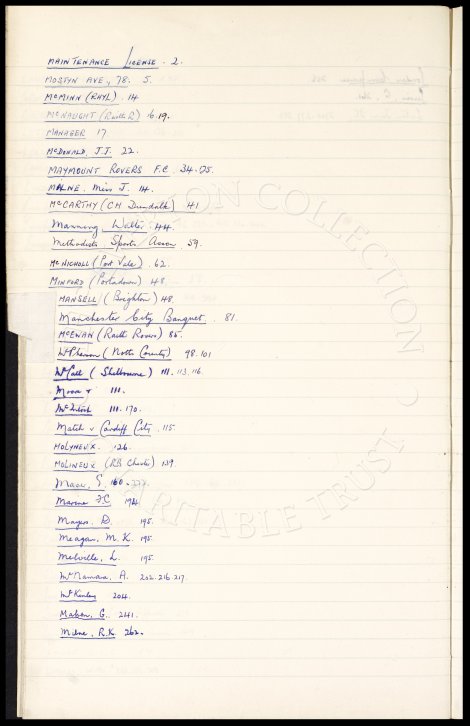 MAINTENANCE License . 2.
MOSTYN AVE., 78. 5.
McMINN (RHYL) . 14
McNAUGHT (Raith R) 6.19.
MANAGER 17.
McDONALD, J.J. 22.
MAYMOUNT ROVERS F.C. 34.
MILNE, Miss J. 14.
McCARTHY (CH Dundalk) 41
Manning, Walter . 44.
Methodists Sports Assoc 59.
McNICHOLL (Port Vale) . 62.
MINFORD (Portadown) 48
MANSELL (Brighton) 48.
Manchester City Banquet . 81.
McEWAN (Raith Rovers) 85.
McPherson (Notts County) 98.101
McCall (Shelbourne) 111. 113. 116.
111.
McIntosh 111. 170.
Match v Cardiff City. 115
MOLYNEUX. 126.
MOLINEUX (RB Chester) 139.
160.
Marine F.C. 194.
Mayers, D. 195.
Meagan, M. K. 195.
Melville, L. 195.
McNamara, A. 202. 216. 217.
McKinley 204.
Mahon, G. 241.
Milne, R.K. 262.
COLLECTION
CHARITABLE TRUST